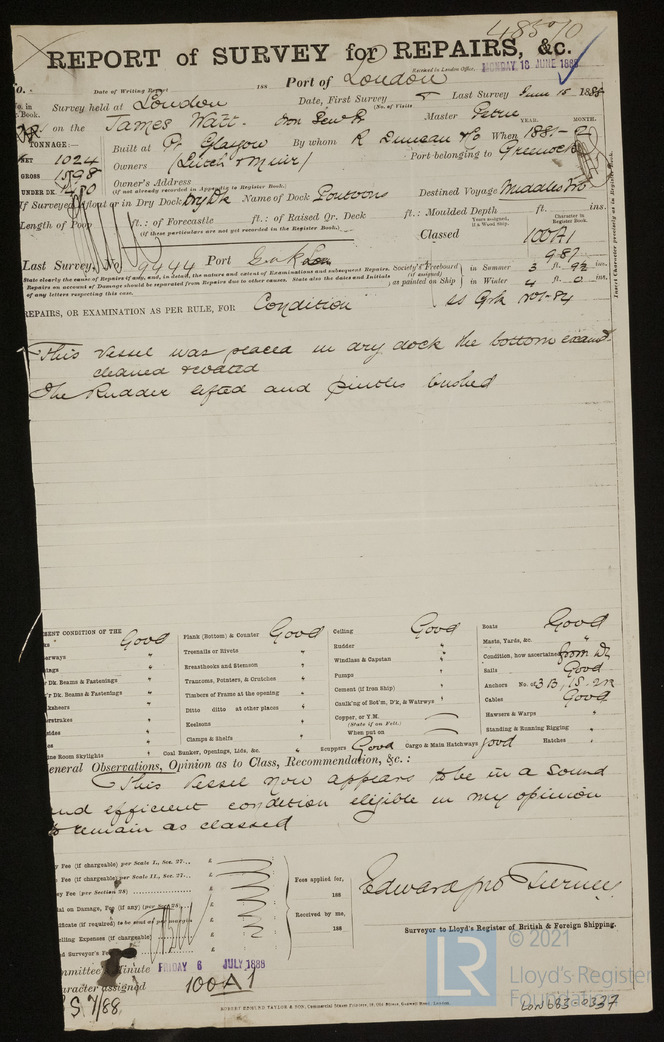 REPORT of SURVEY for REPAIRS, &c.
Date of Writing Report 188 Port of London Received in London Office, MONDAY 18 JUNE 1888
No. in Survey held at London Date, First Survey Last Survey June 15 1888
Book. (No. of Visits
on the James Watt Master Petrie
TONNAGE:— Built at Pt Glasgow By whom R Duncan & Co When 1881 YEAR. MONTH.
NET 1024 Owners (Leitch & Muir) Port belonging to Greenock
GROSS 1598 Owner's Address
UNDER DK. (if not already recorded in Appendix to Register Book.)
If Surveyed Afloat or in Dry Dock Dry Dk Name of Dock Pontoons Destined Voyage
Length of Poop ft.: of Forecastle ft.: of Raised Qr. Deck ft.: Moulded Depth ft. ins.
(if these particulars are not yet recorded in the Register Book.)
Years assigned, if a Wood Ship. Character in Register Book.
Classed 100A1
9.87
Last Survey, No. 9444 Port
State clearly the cause of Repairs if any, and, in detail, the nature and extent of Examinations and subsequent Repairs.
Repairs on account of Damage should be separated from Repairs due to other causes. State also the Dates and Initials
of any letters respecting this case.
Society's Freeboard (if assigned) as painted on Ship in Summer 3 ft. 9½ ins.
in Winter 4 ft. 0 ins.
Insert Character precisely as in Register Book.
REPAIRS, OR EXAMINATION AS PER RULE, FOR Condition
This vessel was placed in dry dock the bottom examd
cleaned & coated
The Rudder lifted and pintles bushed
PRESENT CONDITION OF THE
Good Plank (Bottom) & Counter Good Ceiling Good Boats Good
Treenails or Rivets " Rudder " Masts, Yards, &c. "
Breasthooks and Stemson " Windlass & Capstan " Condition, how ascertained from Dk
Transoms, Pointers, & Crutches " Pumps " Sails Good
Dk. Beams & Fastenings " Timbers of Frame at the opening " Cement (if Iron Ship) " Anchors No. of 3B, 1S, 2K
Dk. Beams & Fastenings " Ditto ditto at other places " Caulk'ng of Bot'm, D'k, & Watrwys " Cables Good
Keelsons " Copper, or Y.M. (State if on Felt.) Hawsers & Warps "
Clamps & Shelfs " When put on Standing & Running Rigging "
Engine Room Skylights " Coal Bunker, Openings, Lids, &c. " Scuppers Good Cargo & Main Hatchways good Hatches "
General Observations, Opinion as to Class, Recommendation, &c.:
This Vessel now appears to be in a sound
and efficient condition eligible in my opinion
to remain as classed
Fee (if chargeable) per Scale I., Sec. 27... £
Fee (if chargeable) per Scale II., Sec. 27... £
Fee (per Section 28) £
on Damage, Fee (if any) (per Sec. 28) £
Certificate (if required) to be sent as per margin
Travelling Expenses (if chargeable) £
Fees applied for, 188
Received by me, 188
Edward Jno Turner
Surveyor to Lloyd's Register of British & Foreign Shipping.
Committee's Minute FRIDAY 6 JULY 1888
Character assigned 100A1
7/88
ROBERT EDMUND TAYLOR & SON, Commercial Steam Printers, 19, Old Street, Goswell Road, London.
LR © 2021
Lloyd's Register
Foundation
LON 683-0337